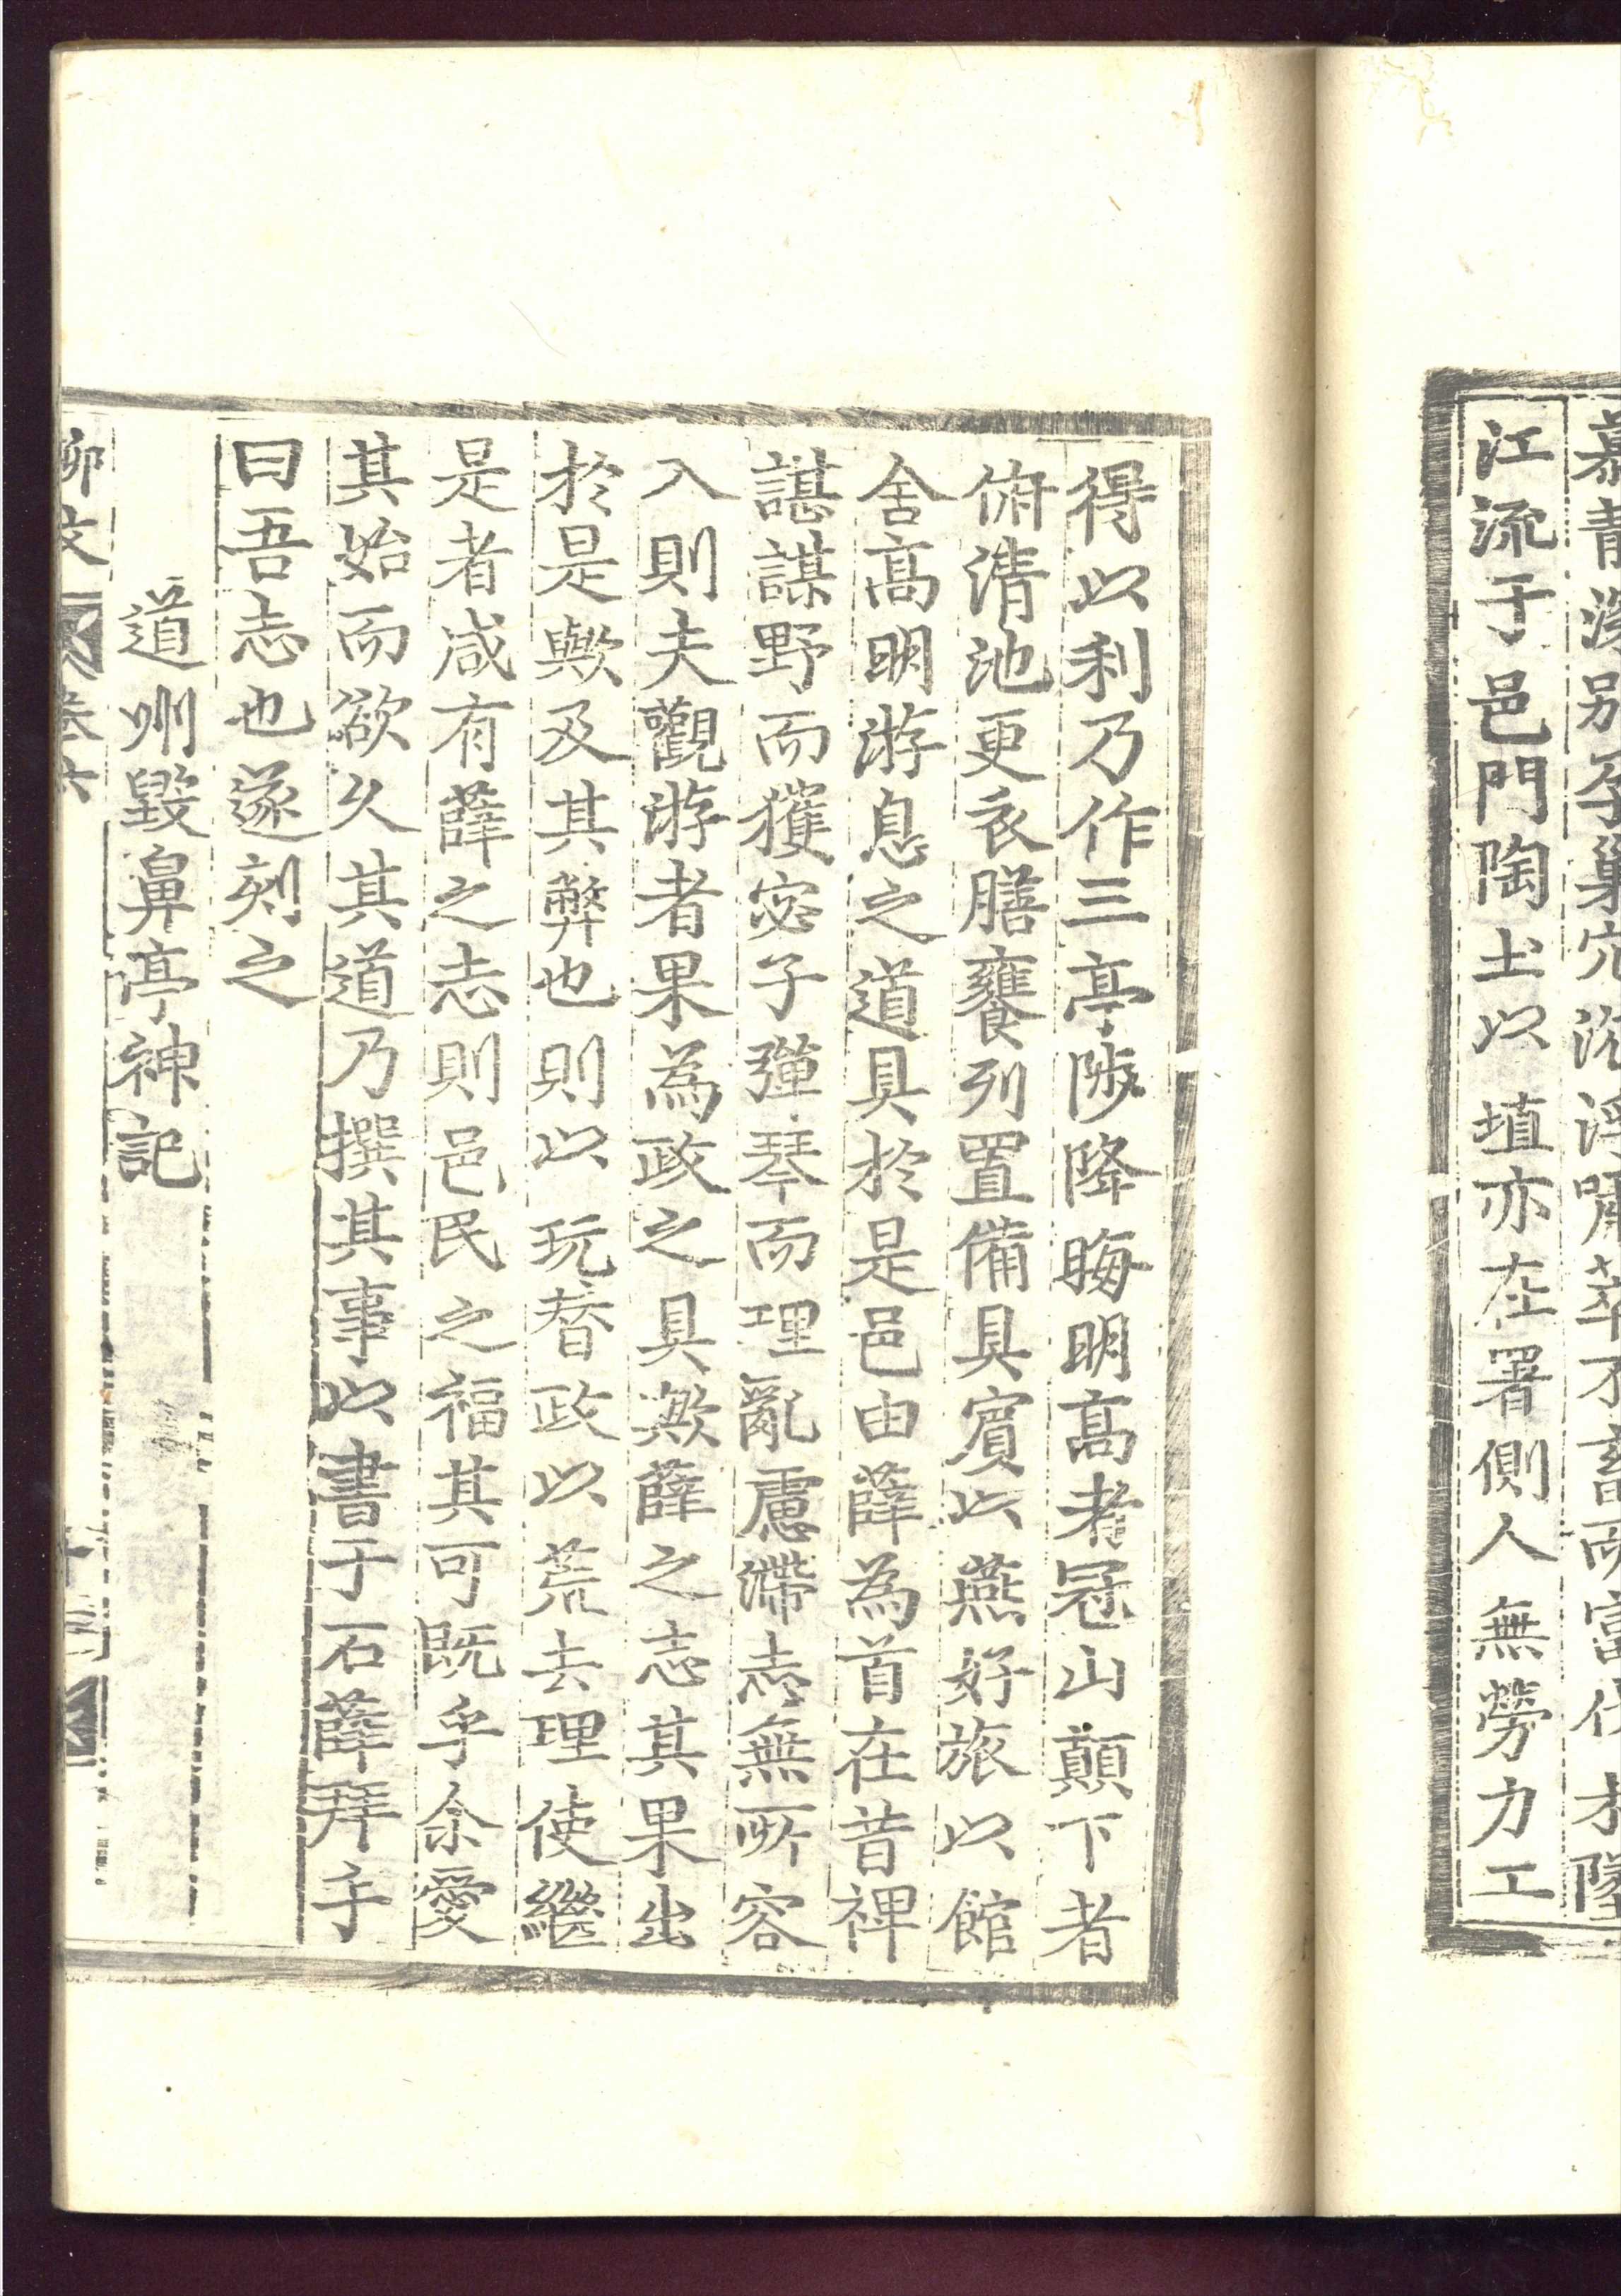 青
江流于邑門陶土以埴亦在署側人無勞力工
得以利乃作三亭陟降晦明高者冠山顛下者
俯清池更衣膳饔列置備具賓以燕好旅以館
舍高明游息之道具於是邑由薛為首在昔裨
諶謀野而獲宓子彈琴而理亂慮滯志無所容
入則夫觀游者果為政之具歟薛之志其果出
於是歟及其弊也則以玩替政以荒去理使繼
是者咸有薛之志則邑民之福其可既乎余愛
其始而欲久其道乃撰其事以書于石薛拜手
曰吾志也遂刻之
道州毀鼻亭神記
柳文